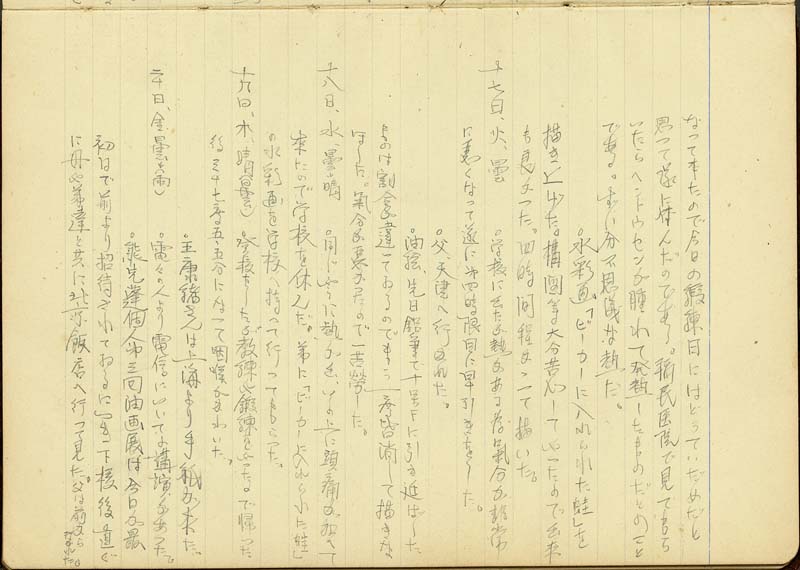 なって来たので今日の鍛練日にはどうていだめだと
思って遂に休んだのである。稲民医院で見てもら
いたらヘントウセンが腫れて発熱したものだとのこと
である。ずい分不思議な熱だ。
○水彩画「ビーカーに入れられた蛙」を
描き上げた。構図等大分苦心してやったので出来
も良かった。四時間程かゝって描いた。
十七日、火、曇 ○学校に出たが熱があり気分が非常
に悪くなって遂に第四時限目に早引きをした。
○父、天津へ行かれた。
○油絵、先日鉛筆で十号Fに引き延ばした
ものは割合違っておるのでもう一度皆消して描きな
ほした。気分が悪かったので一苦労した。
十八日、水、曇晴 ○同じように熱が出、その上に頭痛が加へて
来たので学校を休んだ。弟に「ビーカーに入れられた蛙」
の水彩画を学校へ持って行ってもらった。
十九日、木、晴(曇) ○登校したが教練や鍛練をやったので帰った
後三十七度五、五分になって咽喉がまわいた。
○王康緒さんは上海より手紙が来た。
二十日、金、曇(雨) ○電々の人より電信についてお講演があった。
○熊先輩個人第三回油画展は今日が最
初日で前より招待されておるについき下校後直ぐ
に母や弟達と共に北京飯店へ行って見た。父は前から